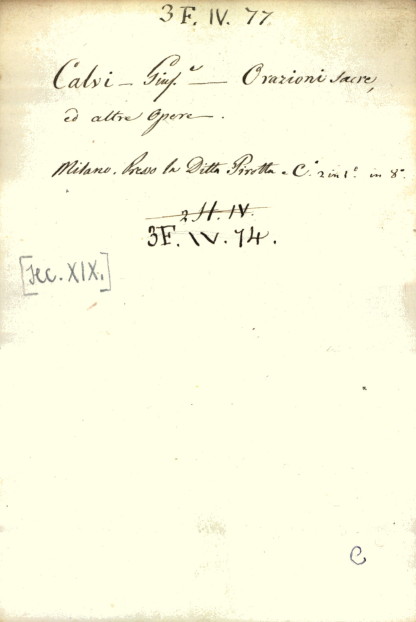 3 F. IV. 77
Calvi - Giuf.e — Orazioni sacre,
ed altre opere —.
Milano. Presso la Ditta Pirotta e C.a 2 in 1.o in 8.o
2 H. IV.
3F. IV. 74.
[sec. XIX.]
C